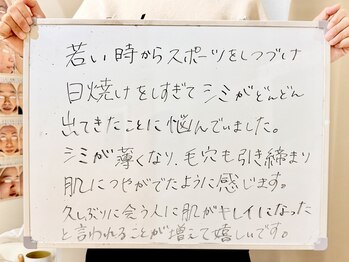 若い時からスポーツをしつづけ
日焼けをしすぎてシミがどんどん
出てきたことに悩んでいました。
シミが薄くなり、毛穴も引き締まり
肌につやがでたように感じます。
久しぶりに会う人に肌がキレイになった
と言われることが増えて嬉しいです。